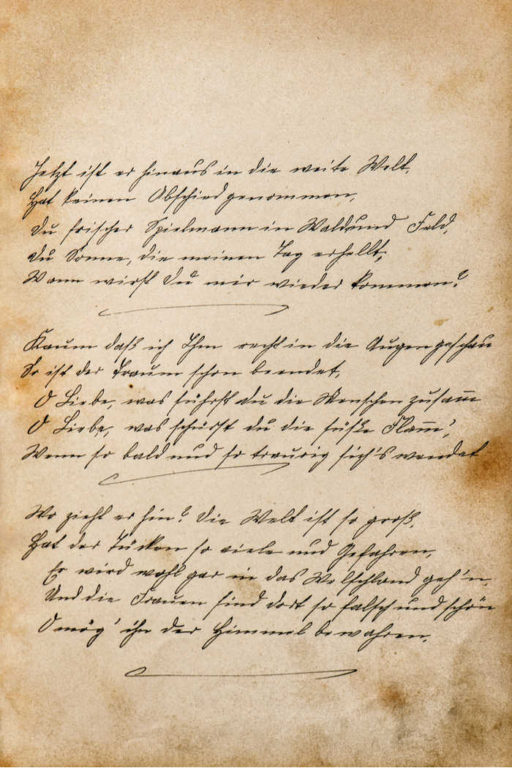 Jetzt ist er hinaus in die weite Welt,
Hat keinen Abschied genommen,
Du frischer Spielmann in Wald und Feld,
Du Sonne, die meinen Tag erhellt,
Wann wirst Du mir wieder kommen?
Kaum daß ich Ihm recht in die Augen geschau
So ist der Traum schon beendet,
O Liebe, was führst du die Menschen zusam̄
O Liebe, was schürst du die süße Flam̄',
Wenn so bald und so traurig sich's wendet
Wo zieht er hin? Die Welt ist so groß,
Hat der Tücken so viele und Gefahren,
Er wird wohl gar in das Welschland geh'n,
Und die Frauen sind dort so falsch und schön
O mög' ihn der Himmel bewahren.